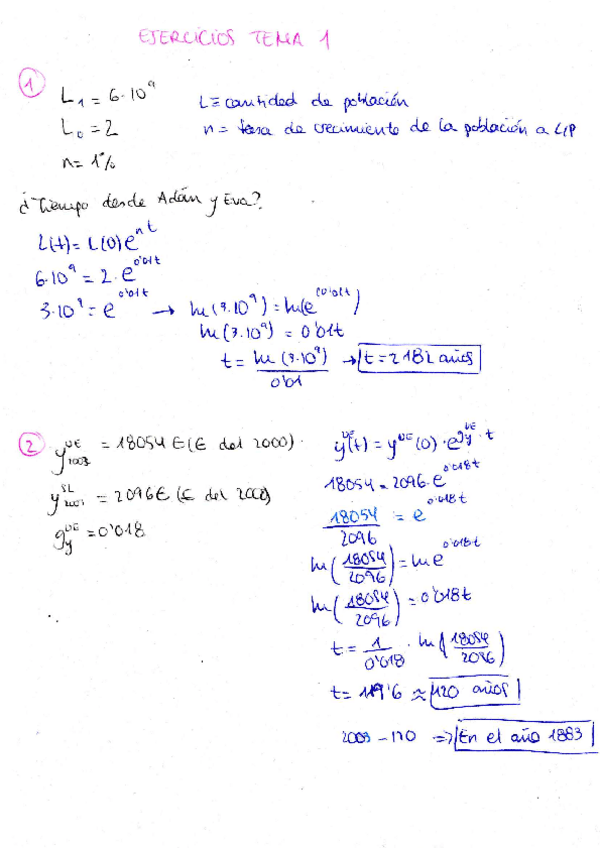 EJERCICIOS TEMA 1
1
L₁ = 6·10⁹ L = cantidad de población
L₀ = 2 n = tasa de crecimiento de la población a L/P
n = 1%
¿Tiempo desde Adán y Eva?
L(t) = L(0)e^nt
6·10⁹ = 2·e^0'01t
3·10⁹ = e^0'01t → ln(3·10⁹) = ln(e^(0'01t))
ln(3·10⁹) = 0'01t
t = ln(3·10⁹)/0'01 → t = 2182 años
2
y^UE 2003 = 18054 € (€ del 2000)
y^SL 2003 = 2096 € (€ del 2000)
g_y^UE = 0'018
y^UE(t) = y^UE(0)·e^g_y^UE·t
18054 = 2096·e^0'018t
18054/2096 = e^0'018t
ln(18054/2096) = ln e^0'018t
ln(18054/2096) = 0'018t
t = 1/0'018 · ln(18054/2096)
t = 119'6 ≈ 120 años
2003 - 120 => En el año 1883